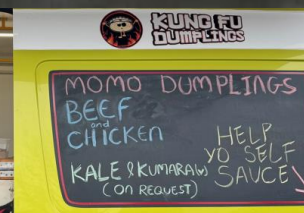 KUNG FU
DUMPLINGS
MOMO DUMPLINGS
BEEF
and
CHICKEN
KALE & KUMARA(v)
(ON REQUEST)
HELP
YO SELF
SAUCE